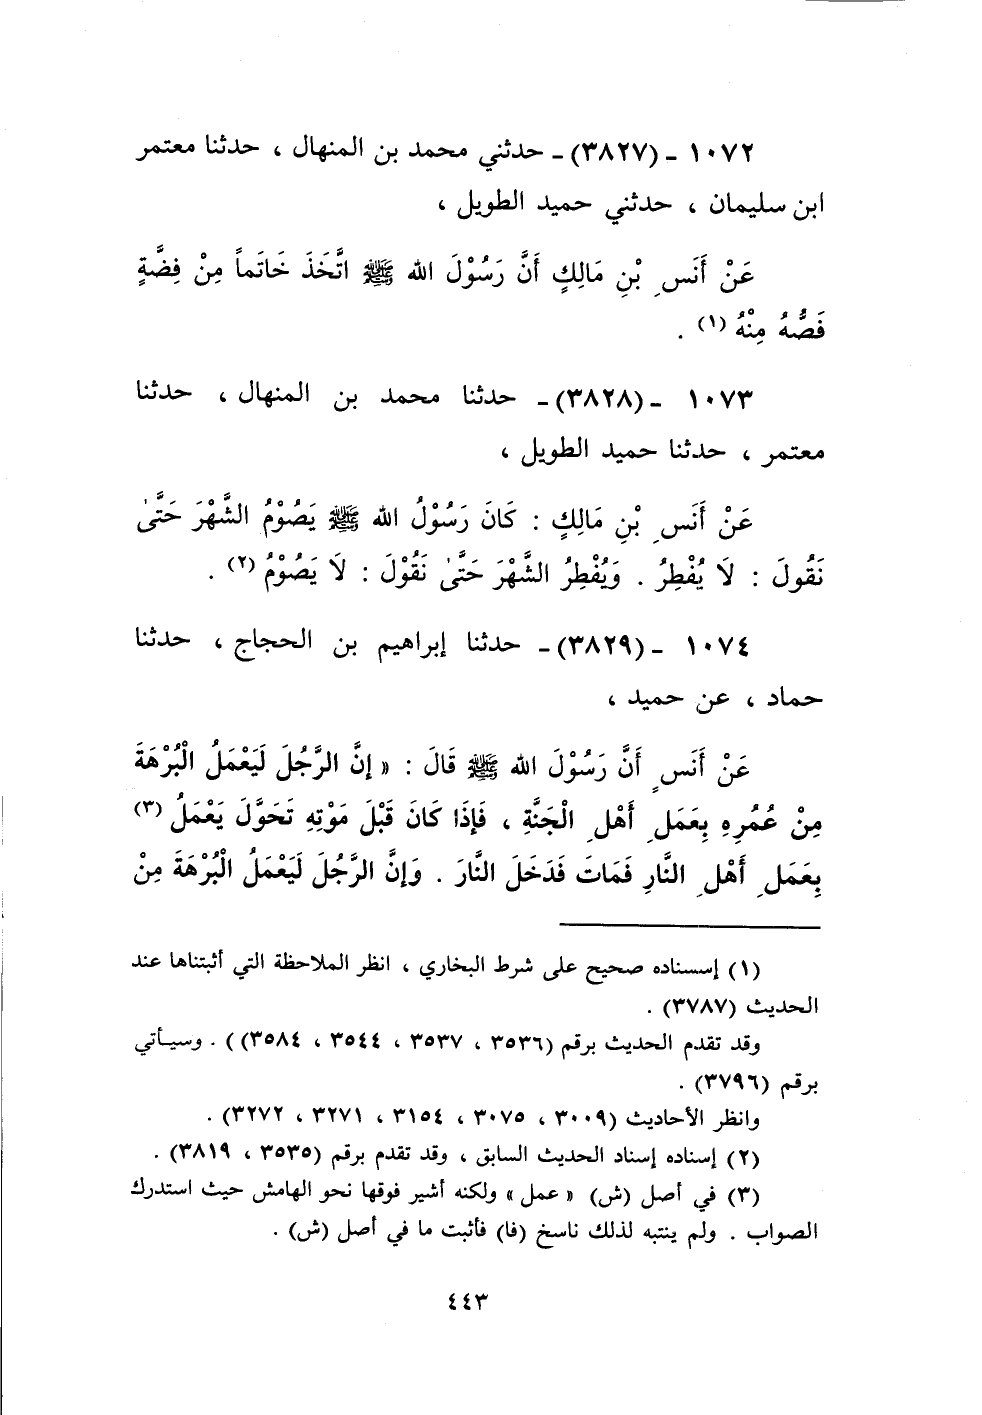 ١٠٧٢ ـ (٣٨٢٧) ـ حدثني محمد بن المنهال ، حدثنا معتمر
ابن سليمان ، حدثني حميد الطويل ،
عَنْ أَنَسِ بْنِ مَالِكٍ أَنَّ رَسُوْلَ الله ﷺ اتَّخَذَ خَاتَماً مِنْ فِضَّةٍ
فَصُّهُ مِنْهُ (١) .
١٠٧٣ ـ (٣٨٢٨) ـ حدثنا محمد بن المنهال ، حدثنا
معتمر ، حدثنا حميد الطويل ،
عَنْ أَنَسِ بْنِ مَالِكٍ : كَانَ رَسُوْلُ الله ﷺ يَصُوْمُ الشَّهْرَ حَتَّىٰ
نَقُولَ : لَا يُفْطِرُ . وَيُفْطِرُ الشَّهْرَ حَتَّىٰ نَقُوْلَ : لَا يَصُوْمُ (٢) .
١٠٧٤ ـ (٣٨٢٩) ـ حدثنا إبراهيم بن الحجاج ، حدثنا
حماد ، عن حميد ،
عَنْ أَنَسٍ أَنَّ رَسُوْلَ الله ﷺ قَالَ : « إنَّ الرَّجُلَ لَيَعْمَلُ الْبُرْهَةَ
مِنْ عُمُرِهِ بِعَمَلِ أَهْلِ الْجَنَّةِ ، فَإِذَا كَانَ قَبْلَ مَوْتِهِ تَحَوَّلَ يَعْمَلُ (٣)
بِعَمَلِ أَهْلِ النَّارِ فَمَاتَ فَدَخَلَ النَّارَ . وَإِنَّ الرَّجُلَ لَيَعْمَلُ الْبُرْهَةَ مِنْ
(١) إسسناده صحيح على شرط البخاري ، انظر الملاحظة التي أثبتناها عند
الحديث (٣٧٨٧) .
وقد تقدم الحديث برقم (٣٥٣٦ ، ٣٥٣٧ ، ٣٥٤٤ ، ٣٥٨٤) ) . وسيـأتي
برقم (٣٧٩٦) .
وانظر الأحاديث (٣٠٠٩ ، ٣٠٧٥ ، ٣١٥٤ ، ٣٢٧١ ، ٣٢٧٢) .
(٢) إسناده إسناد الحديث السابق ، وقد تقدم برقم (٣٥٣٥ ، ٣٨١٩) .
(٣) في أصل (ش) « عمل » ولكنه أشير فوقها نحو الهامش حيث استدرك
الصواب . ولم ينتبه لذلك ناسخ (فا) فأثبت ما في أصل (ش) .
٤٤٣